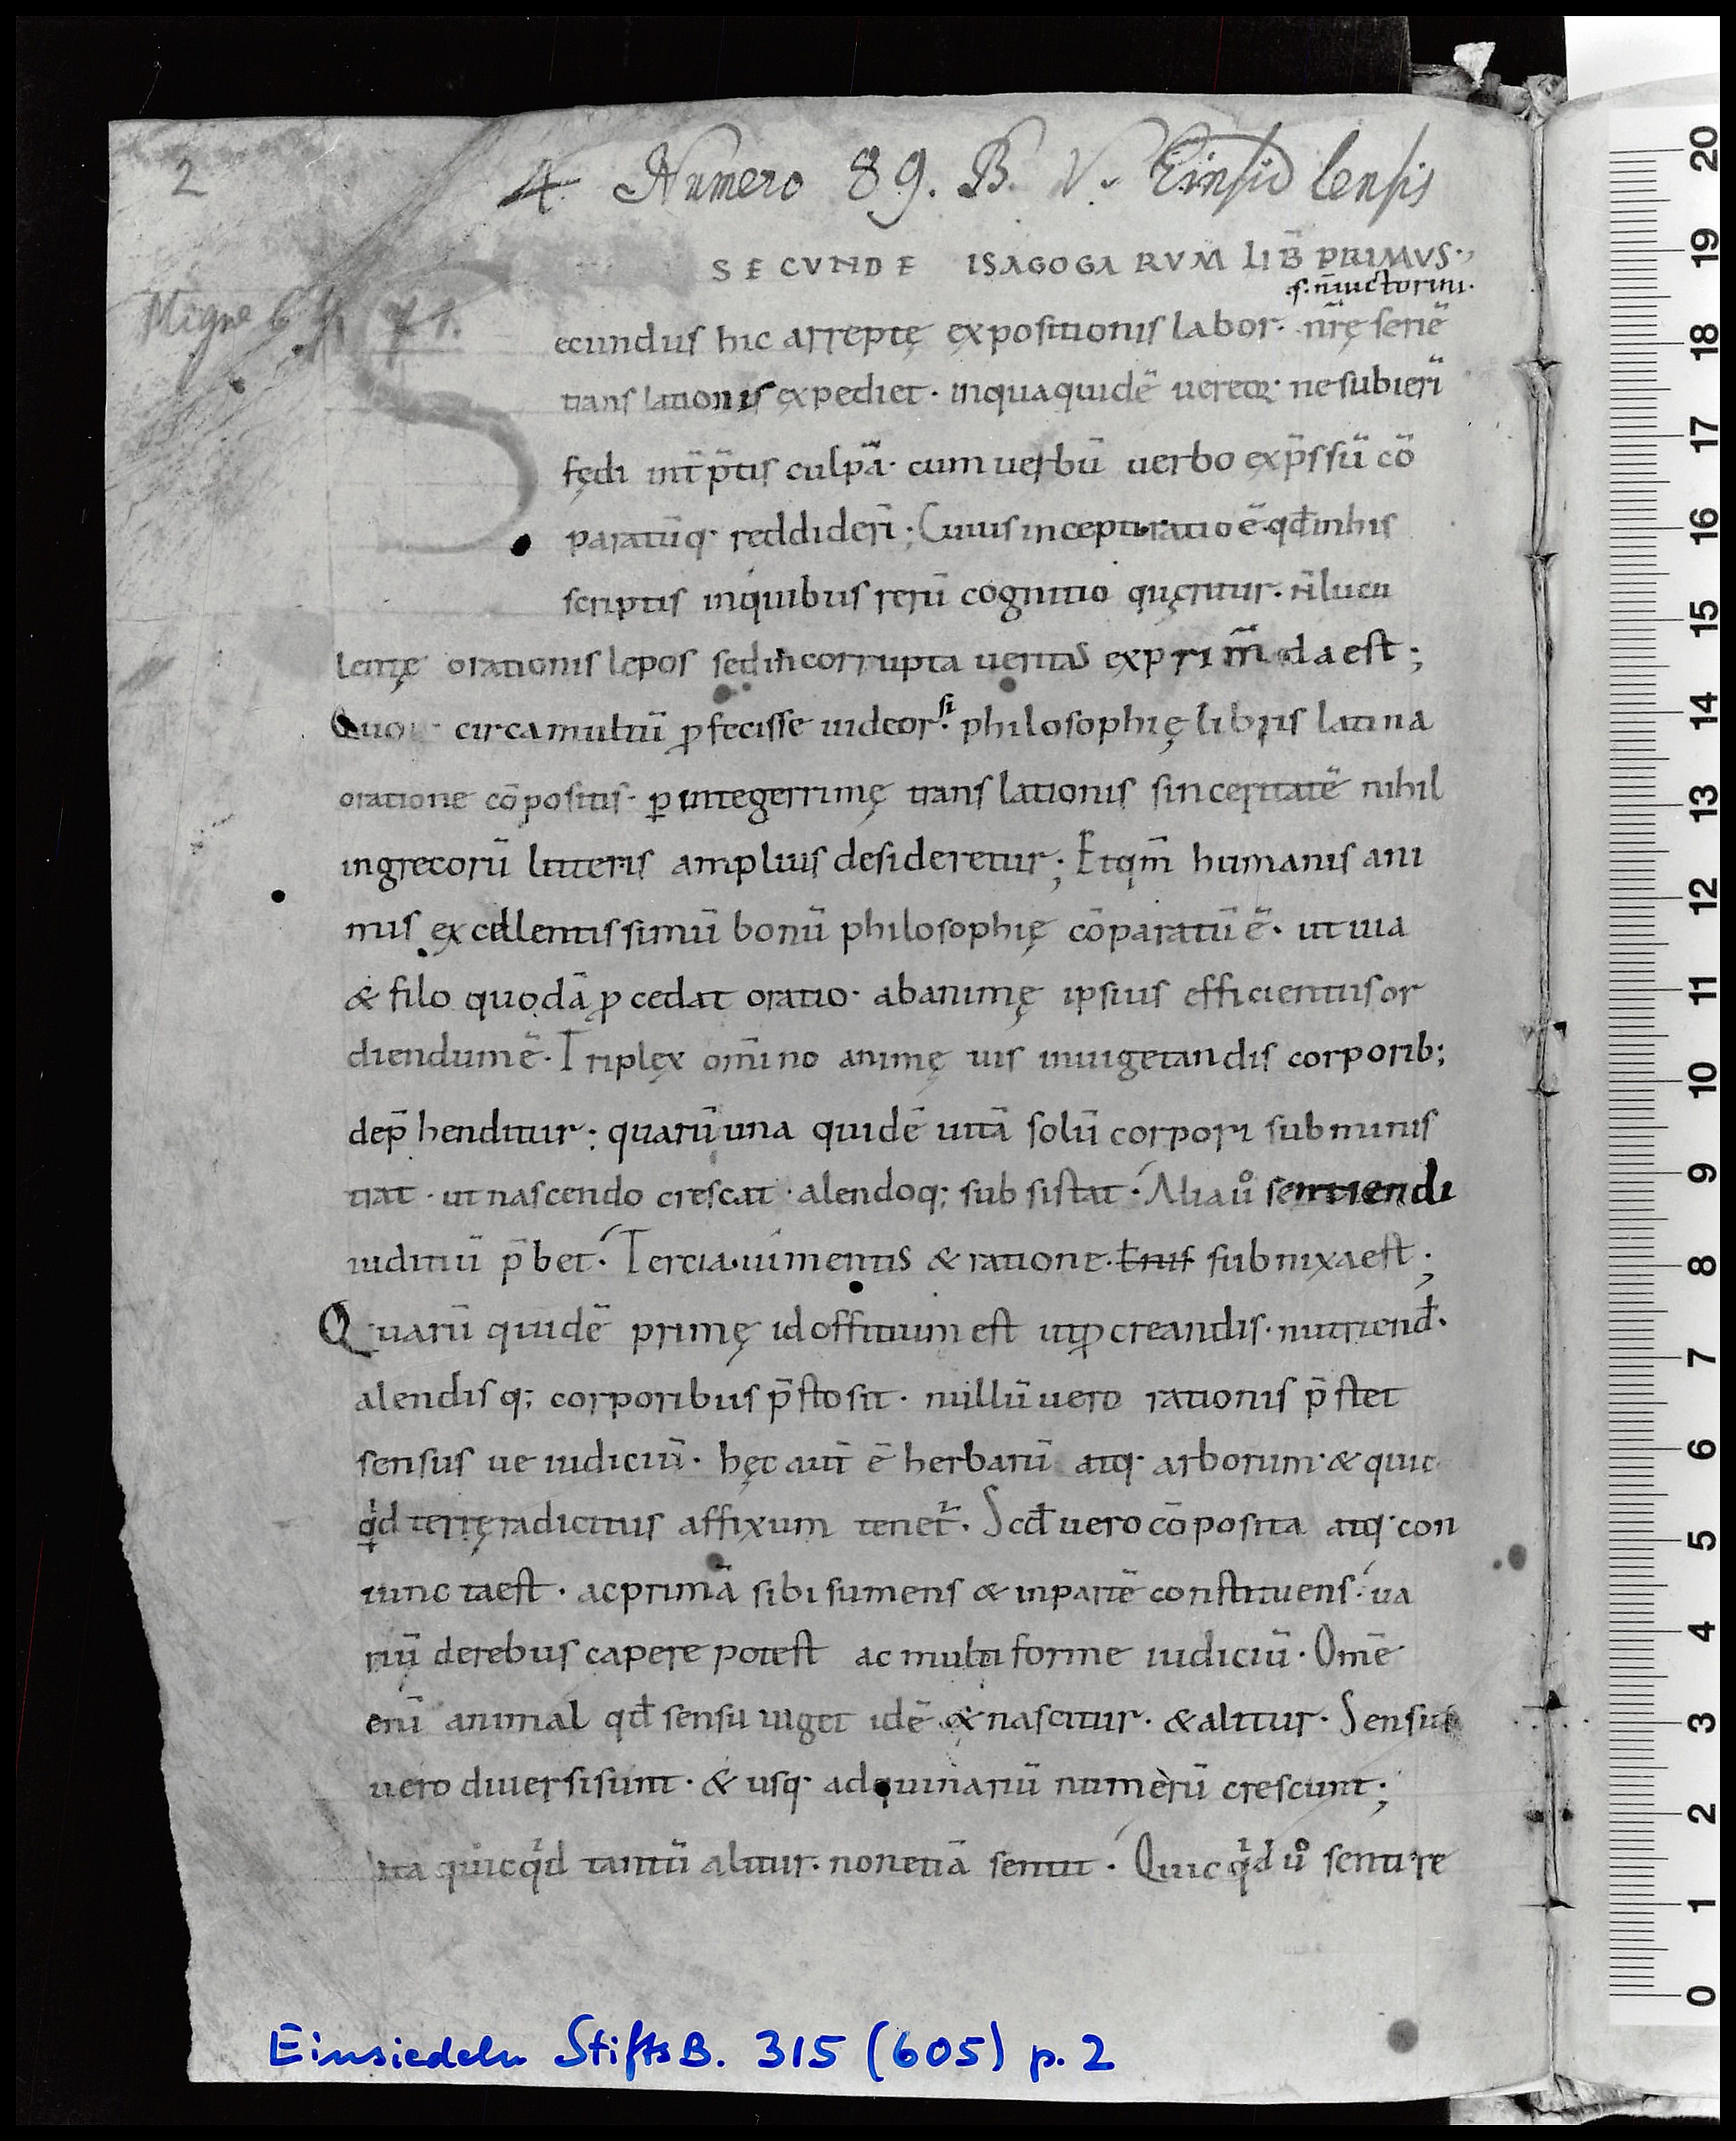 2
4. Numero 89. B. V. Einsidlensis
SECVNDE ISAGOGARVM LIB̄ PRIMVS
Migne 64, 71.
.s. n̄ uictorini.
Secundus hic arreptę expositionis labor. nr̄ę seriē
translationis expediet. inquaquidē uereor. nesubierī
fędi int̄p̄tis culpā. cum uerbū uerbo exp̄ssū cō
paratūq. reddiderī; Cuius incepti ratio ē. qđ inhis
scriptis inquibus rerū cognitio quęritur. n̄ lucu
lentę orationis lepos sed incorrupta ueritas exprim̄daest;
Quo circa multū ꝓfecisse uideor. si philosophię libris latina
oratione cōpositis. ꝑ integerrimę translationis sinceritatē nihil
ingrecorū litteris amplius desideretur; Etqm̄ humanis ani
mis excellentissimū bonū philosophię cōparatū ē. ut uia
& filo quodā ꝓcedat oratio. abanimę ipsius efficientiis or
diendumē. Triplex om̄ino animę uis inuigetandis corporib;
dep̄henditur; quarū una quidē uitā solū corpori subminis
trat. ut nascendo crescat. alendoq; subsistat. Alia uº sentiendi
iuditiū p̄bet. Tercia. ui mentis & ratione. subnixaest;
Quarū quidē primę id offitium est utꝓcreandis. nutriend̄.
alendisq; corporibus p̄sto sit. nullū uero rationis p̄stet
sensus ue iudiciū. hęc aut̄ ē herbarū atq. arborum. & quic
qͥd terrę radicitus affixum tenet̄. Scđ uero cōposita atq. con
iuncta est. ac primā sibi sumens & inpartē constituens. ua
riū derebus capere potest ac multi forme iudiciū. Omē
enī animal qđ sensu uiget idē & nascitur. & alitur. Sensus
uero diuersi sunt. & usq. ad quinariū numerū crescunt;
Ita quicqͥd tantū alitur. non etiā sentit. Quicqͥd uº sentire
Einsiedeln StiftsB. 315 (605) p. 2
20
19
18
17
16
15
14
13
12
11
10
9
8
7
6
5
4
3
2
1
0